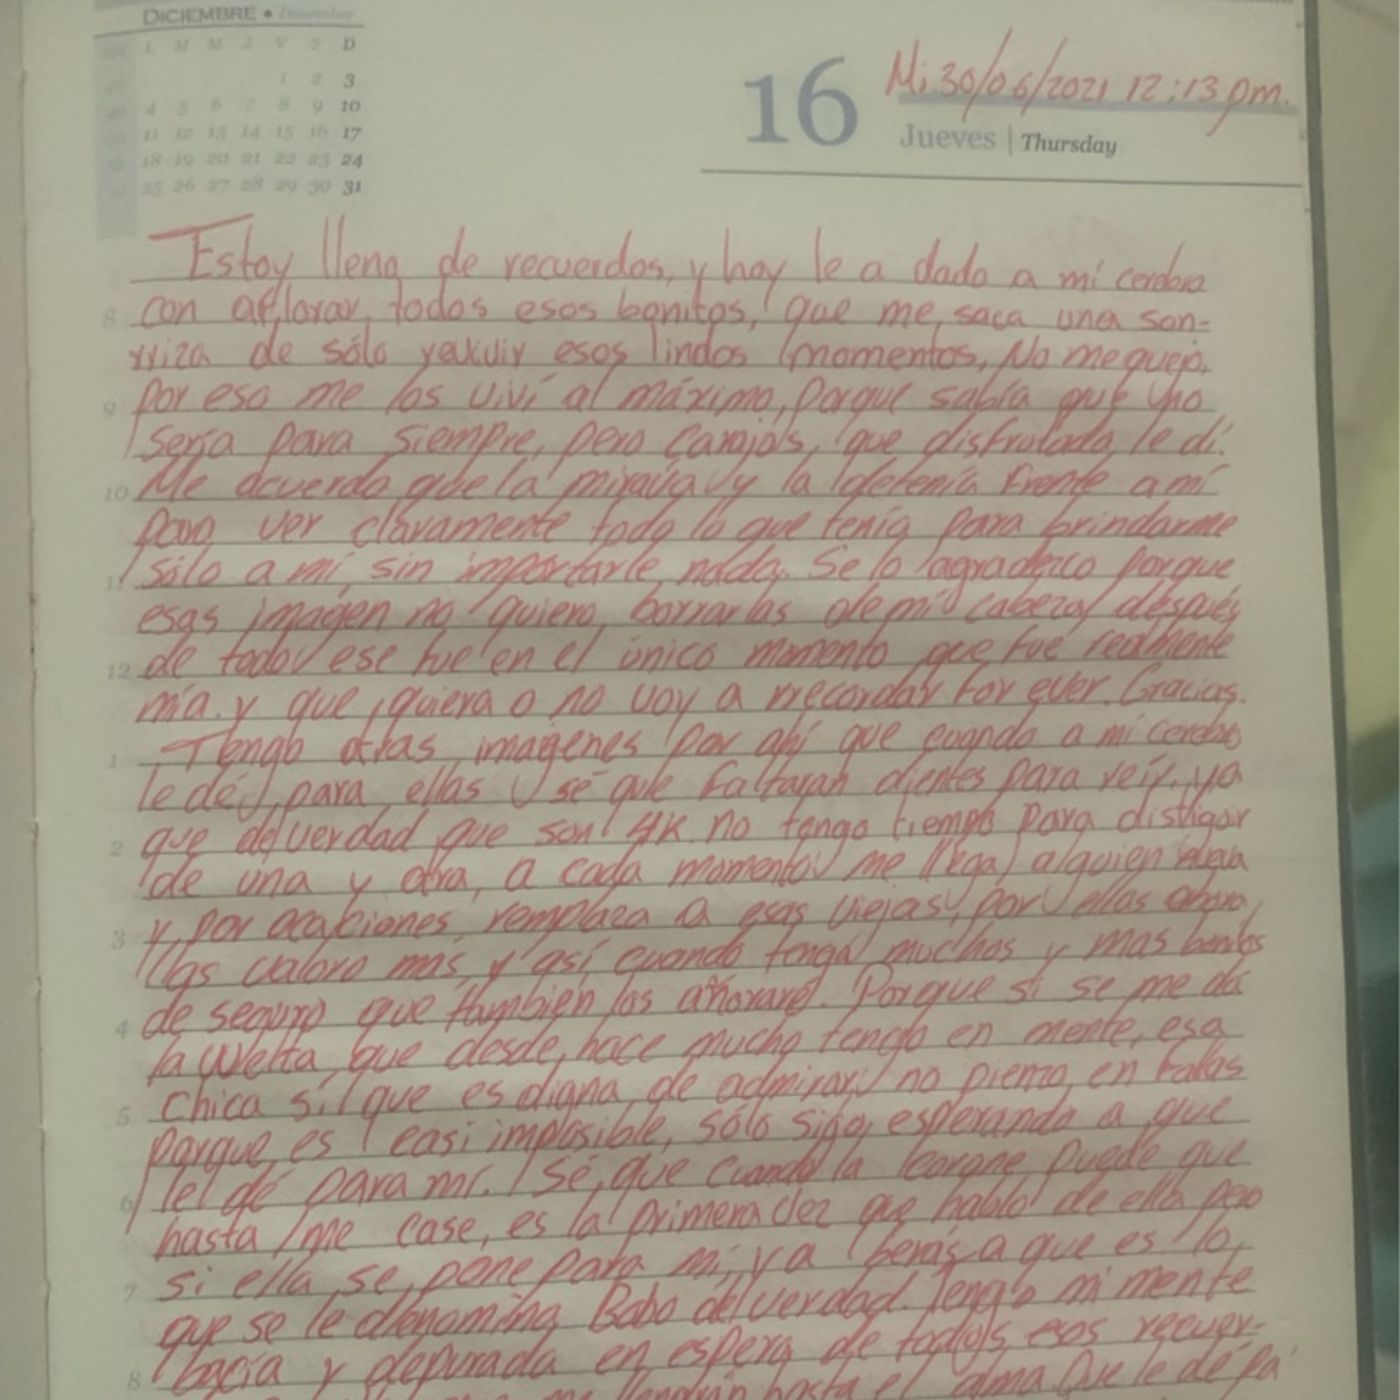 DICIEMBRE • December
L M M J V S D
1 2 3
4 5 6 7 8 9 10
11 12 13 14 15 16 17
18 19 20 21 22 23 24
25 26 27 28 29 30 31
16
Mi 30/06/2021 12:13 pm.
Jueves | Thursday
Estoy lleno de recuerdos, y hoy le a dado a mi cerebro
8 con aflorar todos esos bonitos, que me saca una son-
rriza de sólo revivir esos lindos momentos, No me quejo,
9 por eso me los viví al máximo, porque sabía que no
sería para siempre, pero carajos, que disfrutada le di.
10 Me acuerdo que la mirava y la detenía frente a mí
para ver claramente todo lo que tenía para brindarme
11 sólo a mí, sin importarle nada. Se lo agradezco porque
esas imagen no quiero borrarlas de mi cabeza, después
12 de todo ese fue en el único momento que fue realmente
mía. y que quiera o no voy a rrecordar for ever. Gracias.
1 Tengo otras imagenes por ahí que cuando a mi cerebro
le dé para ellas sé que faltaran dientes para reír, ya
2 que de verdad que son 4K. no tengo tiempo para distigar
de una y otra, a cada momento me llega alguien
3 y por ocaciones remplaza a esas viejas, por ellas ahora
las valoro más y así cuando tenga muchos y mas bonitos
4 de seguro que también los añoraré. Porque si se me da
la vuelta que desde hace mucho tengo en mente, esa
5 chica sí que es digna de admirar, no pienzo en fallas
porque es casi imposible, sólo sigo esperando a que
6 le dé para mí. Sé que cuando la corone puede que
hasta me case, es la primera vez que hablo de ella pero
7 si ella se pone para mí, va benís a que es lo
que se le denomina Bobo de verdad. Tengo mi mente
8 bacía y depurada en espera de todos esos recuer-
hasta el alma Que le dé pa'